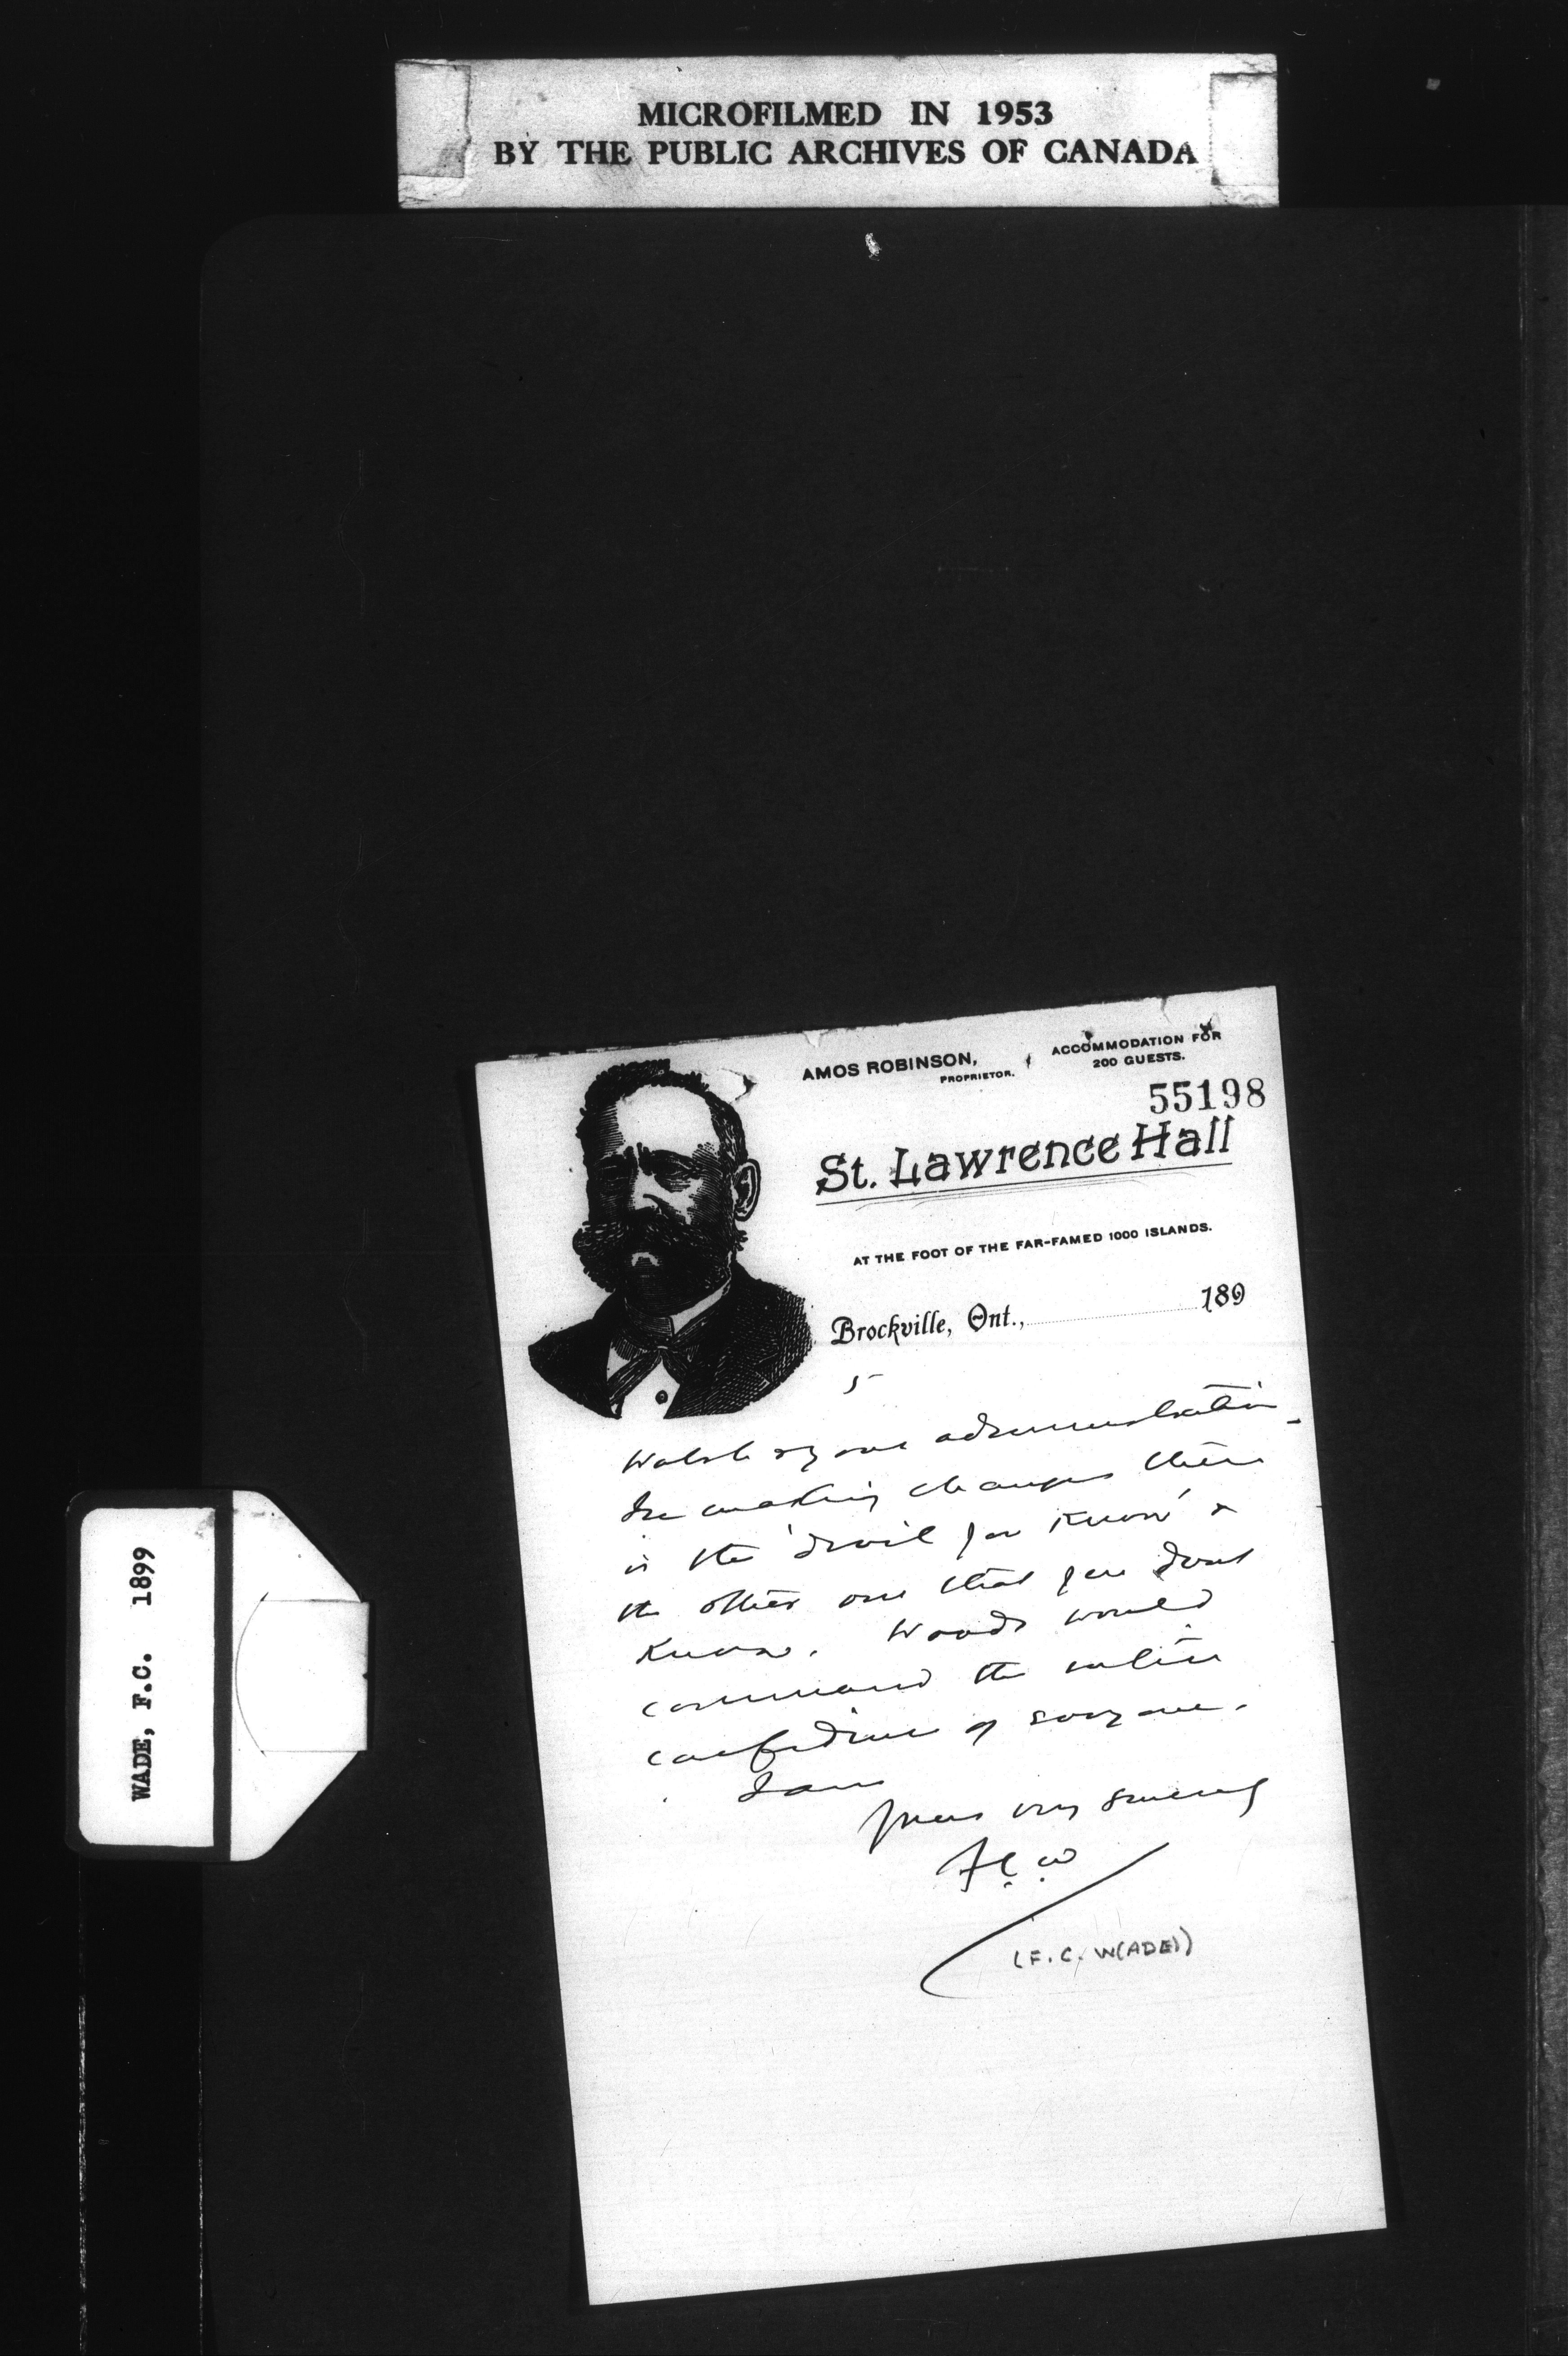 MICROFILMED IN 1953
BY THE PUBLIC ARCHIVES OF CANADA
AMOS ROBINSON,
PROPRIETOR.
ACCOMMODATION FOR
200 GUESTS.
55198
St. Lawrence Hall
AT THE FOOT OF THE FAR-FAMED 1000 ISLANDS.
Brockville, Ont., 189
5
Walsh administration.
In making changes there
is the 'devil you know' &
the other one that you dont
know. Woods would
command the entire
confidence of everyone.
I am
Yours very sincerely
F.C.W
(F.C. W(ADE))
WADE, F.C. 1899